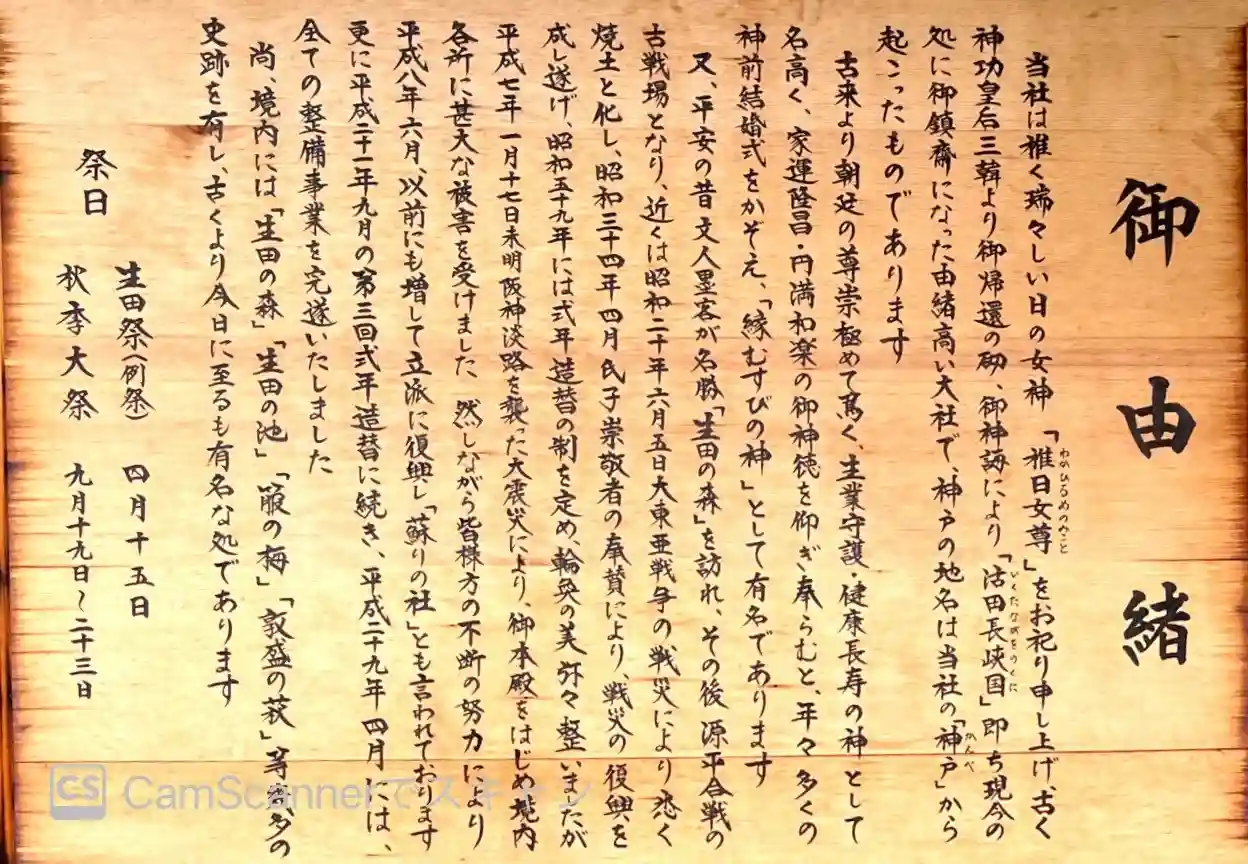 御由緒
当社は稚く瑞々しい日の女神「稚日女尊」をお祀り申し上げ、古く
わかひるめのみこと
神功皇后三韓より御帰還の砌、御神誨により「活田長峡国」即ち現今の
いくたながをのくに
処に御鎮斎になった由緒高い大社で、神戸の地名は当社の「神戸」から
かんべ
起こったものであります
古来より朝廷の尊崇極めて篤く、生業守護・健康長寿の神として
名高く、家運隆昌・円満和楽の御神徳を仰ぎ奉らむと、年々多くの
神前結婚式をかぞえ、「縁むすびの神」として有名であります
又、平安の昔文人墨客が名勝「生田の森」を訪れ、その後源平合戦の
古戦場となり、近くは昭和二十年六月五日大東亜戦争の戦災により悉く
焼土と化し、昭和三十四年四月氏子崇敬者の奉賛により、戦災の復興を
成し遂げ、昭和五十九年には式年造替の制を定め、輪奐の美弥々整いまたが
平成七年一月十七日未明阪神淡路を襲た大震災により、御本殿をはじめ境内
各所に甚大な被害を受けました 然しながら皆様方の不断の努力により
平成八年六月、以前にも増して立派に復興し「蘇りの社」とも言われております
更に平成二十一年九月の第三回式年造替に続き、平成二十九年四月には、
全ての整備事業を完遂いたしました
尚、境内には「生田の森」「生田の池」「箙の梅」「敦盛の萩」等数多の
史跡を有し、古くより今日に至るも有名な処であります
祭日
生田祭(例祭) 四月十五日
秋季大祭 九月十九日〜二十三日
CS CamScannerでスキャン